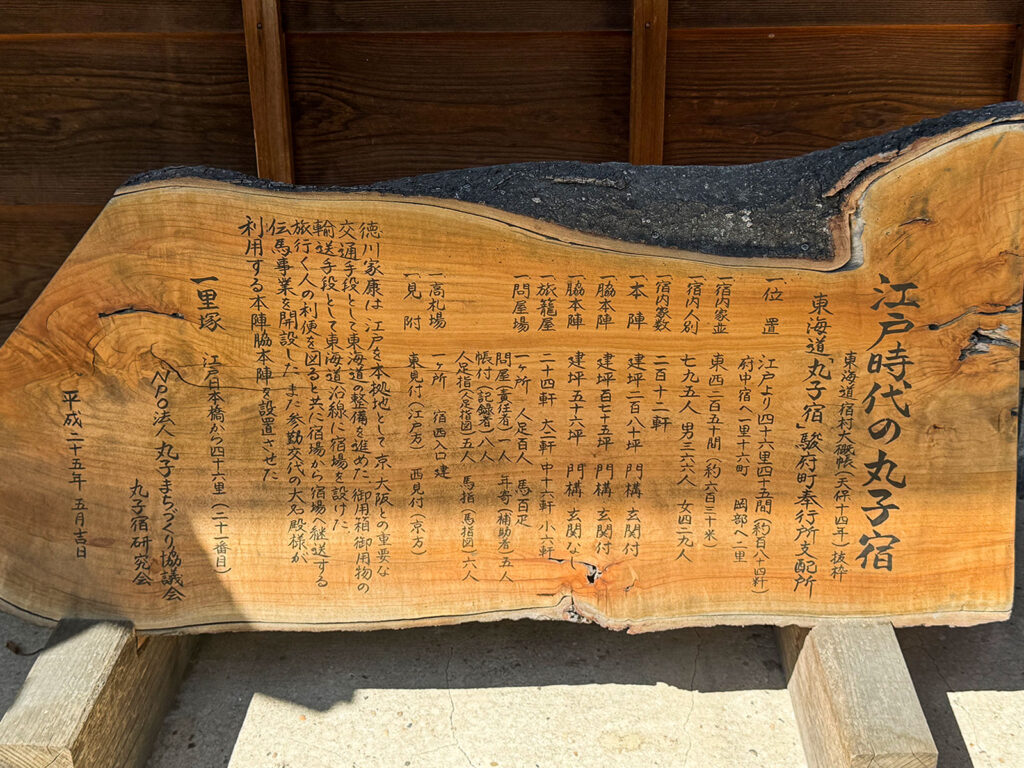 江戸時代の丸子宿
東海道宿村大概帳(天保十四年)抜粋
東海道「丸子宿」駿府町奉行所支配所
一、位置 江戸より四十六里四十五間(約百八十四粁)
府中宿へ一里十六町 岡部へ二里
一、宿内家並 東西二百五十間(約六百三十米)
一、宿内人別 七九五人 男三六六人 女四二九人
一、宿内家数 二百十二軒
一、本陣 建坪二百八十坪 門構 玄関付
一、脇本陣 建坪百七十五坪 門構 玄関付
一、脇本陣 建坪五十六坪 門構 玄関なし
一、旅籠屋 二十四軒 大二軒 中十六軒 小六軒
一、問屋場 一ヶ所 人足百人 馬百疋
問屋(責任者)一人 年寄(補助者)五人
帳付(記録者)八人
人足指(人足指図)五人 馬指(馬指図)六人
一、高札場 一ヶ所 宿西入口建
一、見附 東見付(江戸方) 西見付(京方)
徳川家康は、江戸を本拠地として京、大阪との重要な
交通手段として東海道の整備を進めた。御用箱御用物の
輸送手段として東海道沿線に宿場を設けた。
旅行く人の利便を図ると共に宿場から宿場へ継送する
伝馬事業を開設した。また、参勤交代の大名殿様が
利用する本陣脇本陣を設置させた
一里塚 江戸日本橋から四十六里(二十一番目)
NPO法人丸子まちづくり協議会
丸子宿研究会
平成二十五年 五月吉日